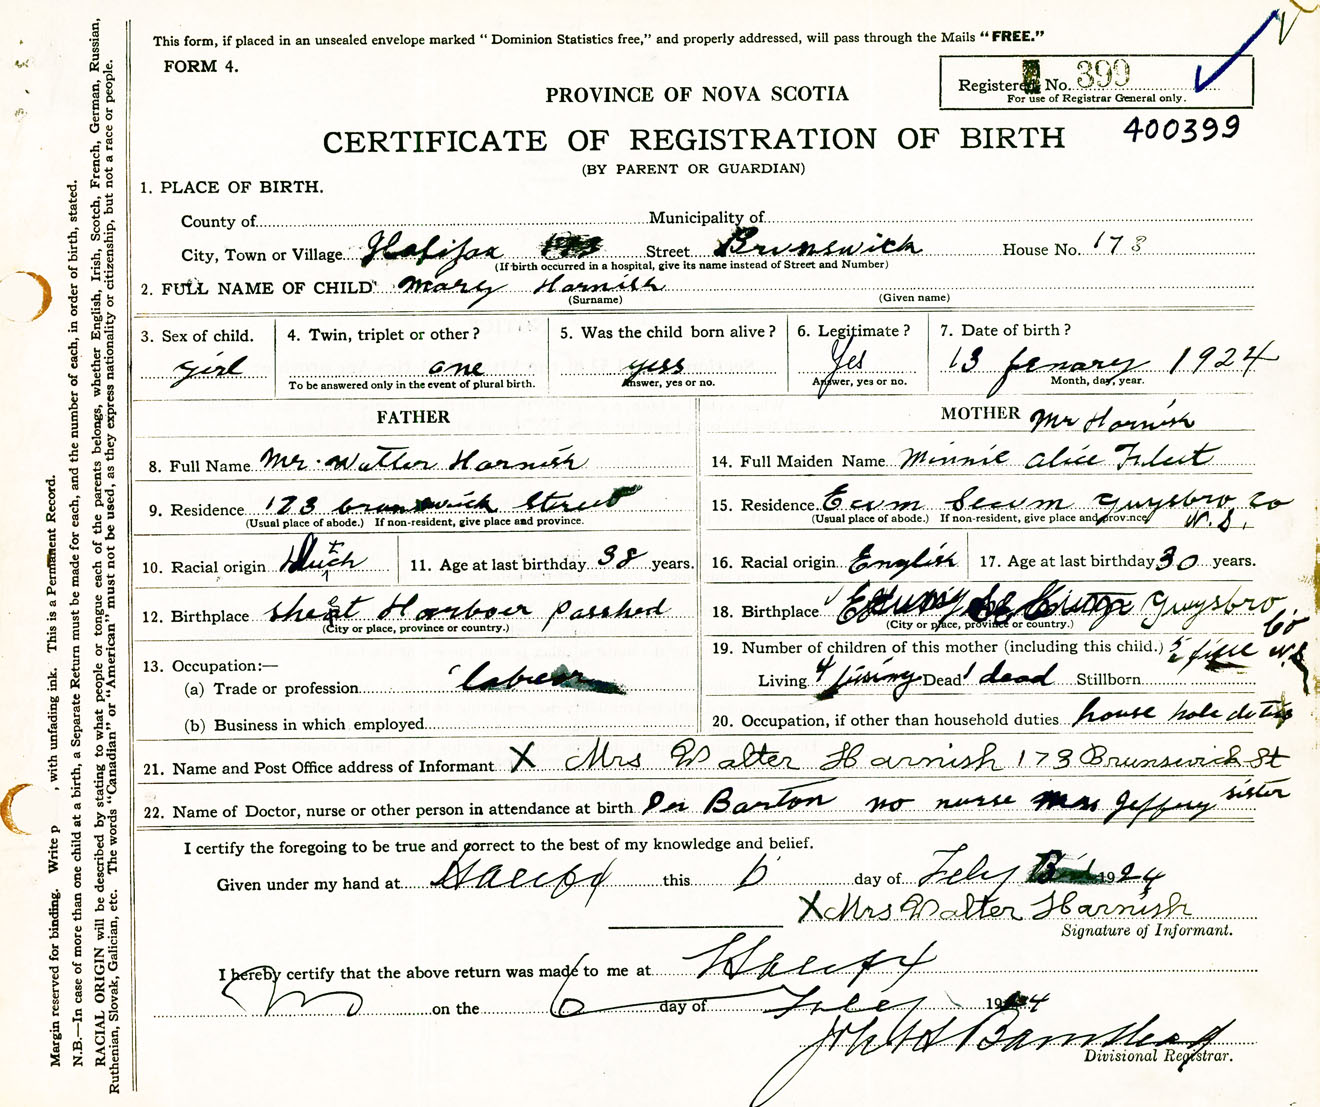 This form, if placed in an unsealed envelope marked “ Dominion Statistics free,” and properly addressed, will pass through the Mails “ FREE.”
FORM 4.
Registered No. 399
For use of Registrar General only.
PROVINCE OF NOVA SCOTIA
400399
CERTIFICATE OF REGISTRATION OF BIRTH
(BY PARENT OR GUARDIAN)
1. PLACE OF BIRTH.
County of Municipality of
City, Town or Village Halifax Street Brunswick House No. 173
(If birth occurred in a hospital, give its name instead of Street and Number)
2. FULL NAME OF CHILD Mary Harnish
(Surname) (Given name)
3. Sex of child. 4. Twin, triplet or other ? 5. Was the child born alive ? 6. Legitimate ? 7. Date of birth ?
girl one yess Yes 13 Jenuary 1924
To be answered only in the event of plural birth. Answer, yes or no. Answer, yes or no. Month, day, year.
FATHER MOTHER Mr Harnish
8. Full Name Mr. Walter Harnish 14. Full Maiden Name Minnie Alice
9. Residence 173 brunswick Street 15. Residence Ecum Secum Guysbro Co
(Usual place of abode.) If non-resident, give place and province. (Usual place of abode.) If non-resident, give place and province N.S.
10. Racial origin Dutch 11. Age at last birthday 38 years. 16. Racial origin English 17. Age at last birthday 30 years.
12. Birthplace Harbour 18. Birthplace Guysbro Co.
(City or place, province or country.) (City or place, province or country.) N.S
13. Occupation:— 19. Number of children of this mother (including this child.) 5 five
(a) Trade or profession labrear Living 4 Dead 1 dead Stillborn
(b) Business in which employed 20. Occupation, if other than household duties house hole duties
21. Name and Post Office address of Informant X Mrs Walter Harnish 173 Brunswick St
22. Name of Doctor, nurse or other person in attendance at birth Barton no nurse Mrs Jeffery sister
I certify the foregoing to be true and correct to the best of my knowledge and belief.
Given under my hand at Halifax this 6 day of Feby 1924
X Mrs Walter Harnish
Signature of Informant.
I hereby certify that the above return was made to me at Halifax
on the 6 day of Feby 1924
Divisional Registrar.
Margin reserved for binding. Write p , with unfading ink. This is a Permanent Record.
N.B.—In case of more than one child at a birth, a Separate Return must be made for each, and the number of each, in order of birth, stated.
RACIAL ORIGIN will be described by stating to what people or tongue each of the parents belongs, whether English, Irish, Scotch, French, German, Russian,
Ruthenian, Slovak, Galician, etc. The words “Canadian” or “American” must not be used, as they express nationality or citizenship, but not a race or people.